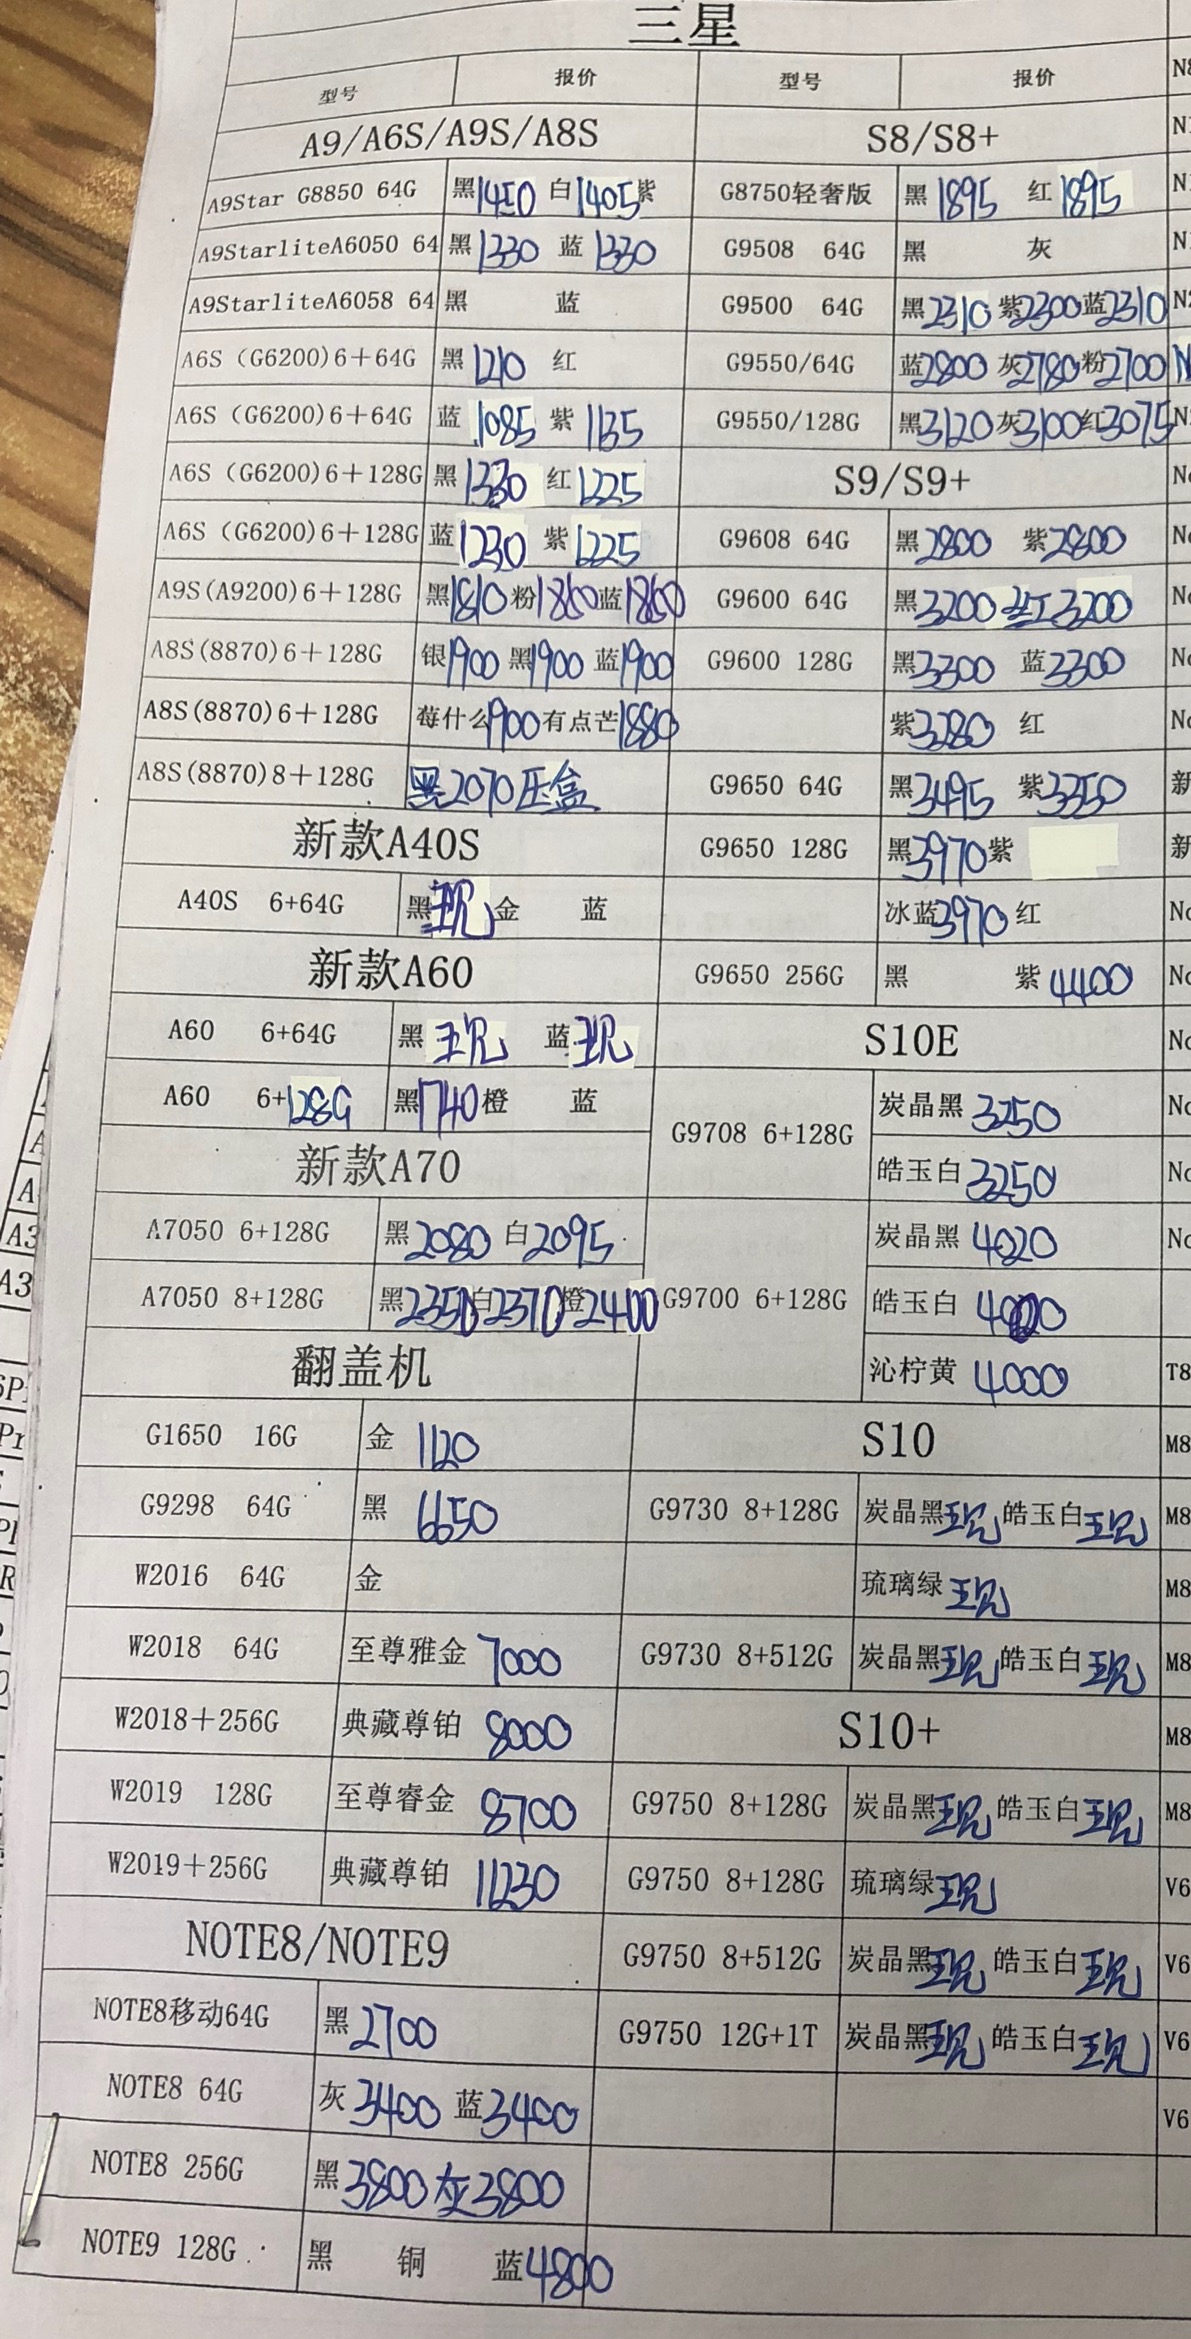 三星
型号 报价 型号 报价
A9/A6S/A9S/A8S S8/S8+
A9Star G8850 64G 黑1450 白1405紫 G8750轻奢版 黑1895 红1895
A9StarliteA6050 64 黑1330 蓝1330 G9508 64G 黑 灰
A9StarliteA6058 64 黑 蓝 G9500 64G 黑2310 紫2300蓝2310
A6S (G6200)6+64G 黑1210 红 G9550/64G 蓝2800 灰2780粉2700
A6S (G6200)6+64G 蓝1085 紫1135 G9550/128G 黑3120灰3100红3075
A6S (G6200)6+128G 黑1330 红1225 S9/S9+
A6S (G6200)6+128G 蓝1230 紫1225 G9608 64G 黑2800 紫2800
A9S(A9200)6+128G 黑1810粉1860蓝1860 G9600 64G 黑3200 红3200
A8S(8870)6+128G 银1900 黑1900 蓝1900 G9600 128G 黑3300 蓝3300
A8S(8870)6+128G 莓什么1900有点芒1880 紫3280 红
A8S(8870)8+128G 黑2070压盒 G9650 64G 黑3495 紫3350
新款A40S G9650 128G 黑3970紫
A40S 6+64G 黑现金 蓝 冰蓝3970红
新款A60 G9650 256G 黑 紫4400
A60 6+64G 黑现 蓝现 S10E
A60 6+128G 黑1740橙 蓝 G9708 6+128G 炭晶黑3250
新款A70 皓玉白3250
A7050 6+128G 黑2080 白2095 炭晶黑4020
A7050 8+128G 黑2350白2370橙2400 G9700 6+128G 皓玉白4020
翻盖机 沁柠黄4000
G1650 16G 金1120 S10
G9298 64G 黑6650 G9730 8+128G 炭晶黑现皓玉白现
W2016 64G 金 琉璃绿现
W2018 64G 至尊雅金7000 G9730 8+512G 炭晶黑现皓玉白现
W2018+256G 典藏尊铂8000 S10+
W2019 128G 至尊睿金8700 G9750 8+128G 炭晶黑现皓玉白现
W2019+256G 典藏尊铂11230 G9750 8+128G 琉璃绿现
NOTE8/NOTE9 G9750 8+512G 炭晶黑现皓玉白现
NOTE8移动64G 黑2700 G9750 12G+1T 炭晶黑现皓玉白现
NOTE8 64G 灰3400 蓝3400
NOTE8 256G 黑3800灰3800
NOTE9 128G 黑 铜 蓝4800